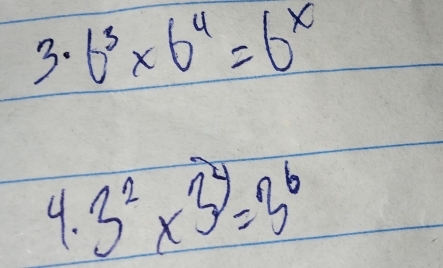 3. 6³ × 6⁴ = 6ˣ
4. 3² × 3⁴ = 3⁶